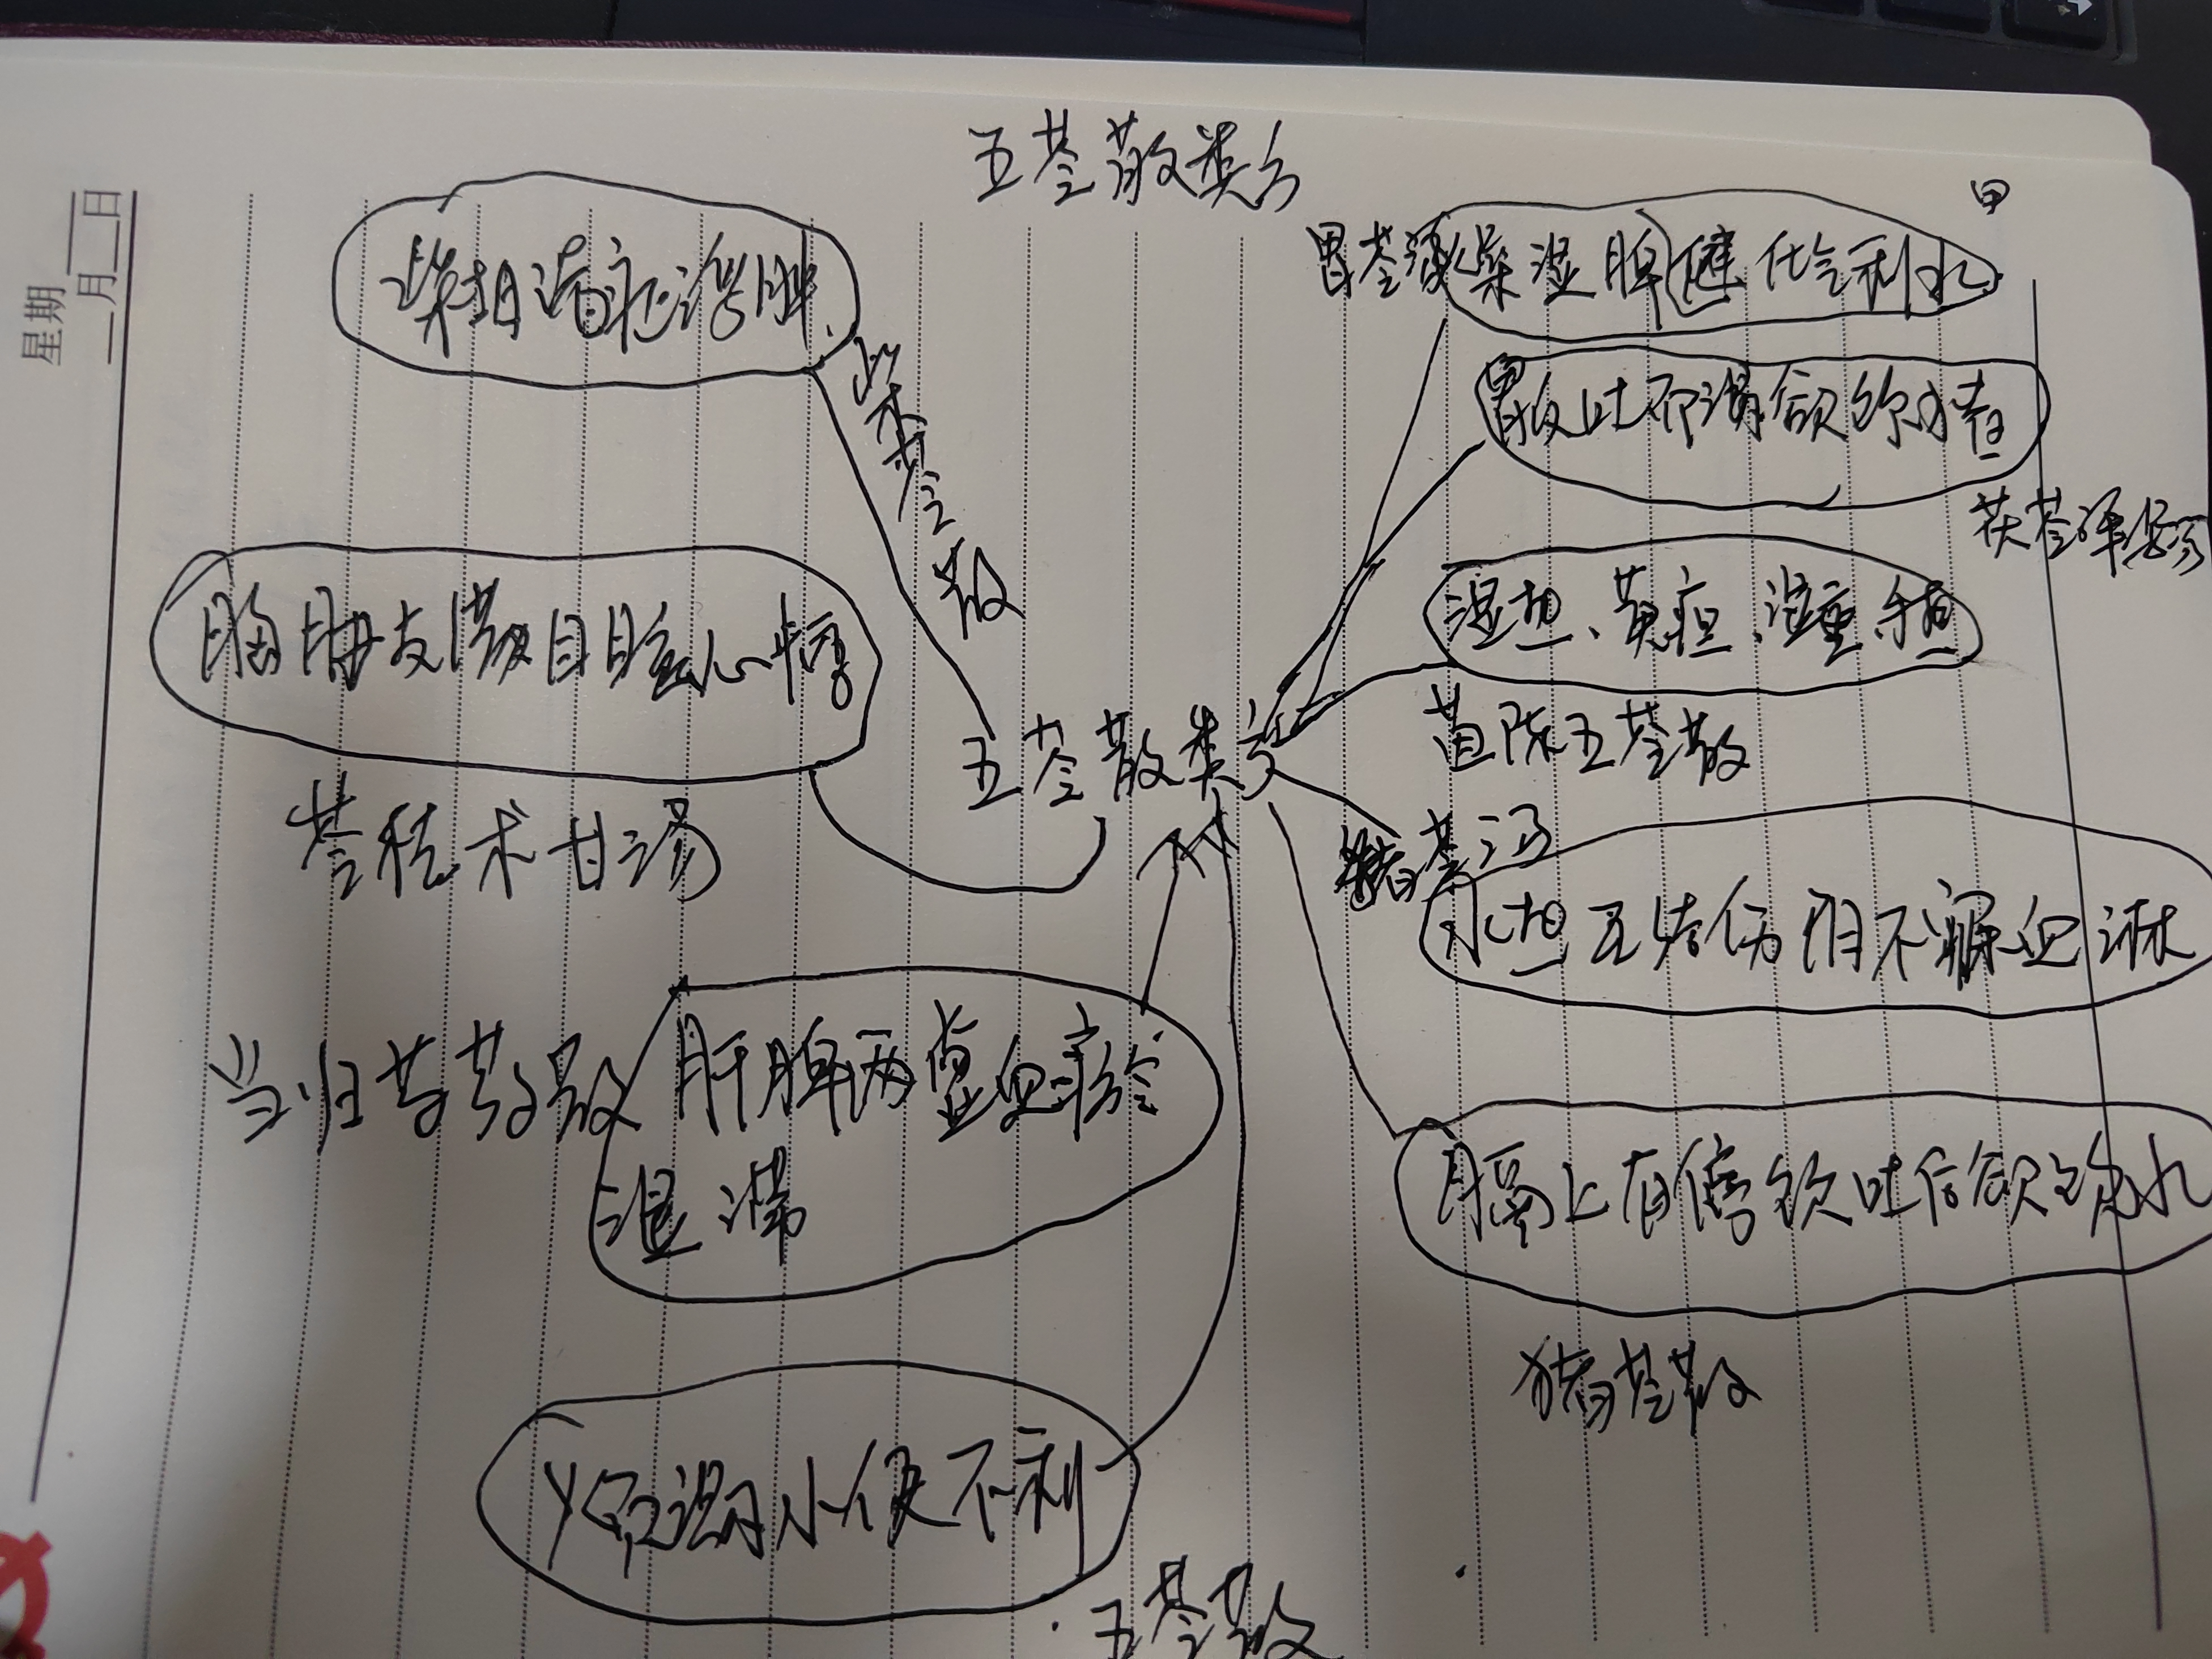 五苓散类方
星期
月 日
甲
胃苓汤
燥湿健脾化气利水
胃反吐不渴欲饮水者
茯苓泽泻汤
湿热、黄疸、湿重于热
茵陈五苓散
猪苓汤
水热互结伤阴不寐血淋
膈上有停饮吐后欲饮水
猪苓散
柴苓散
胸胁支满目眩心悸
苓桂术甘汤
五苓散类方
当归芍药散
肝脾两虚血瘀
湿滞
消渴小便不利
五苓散